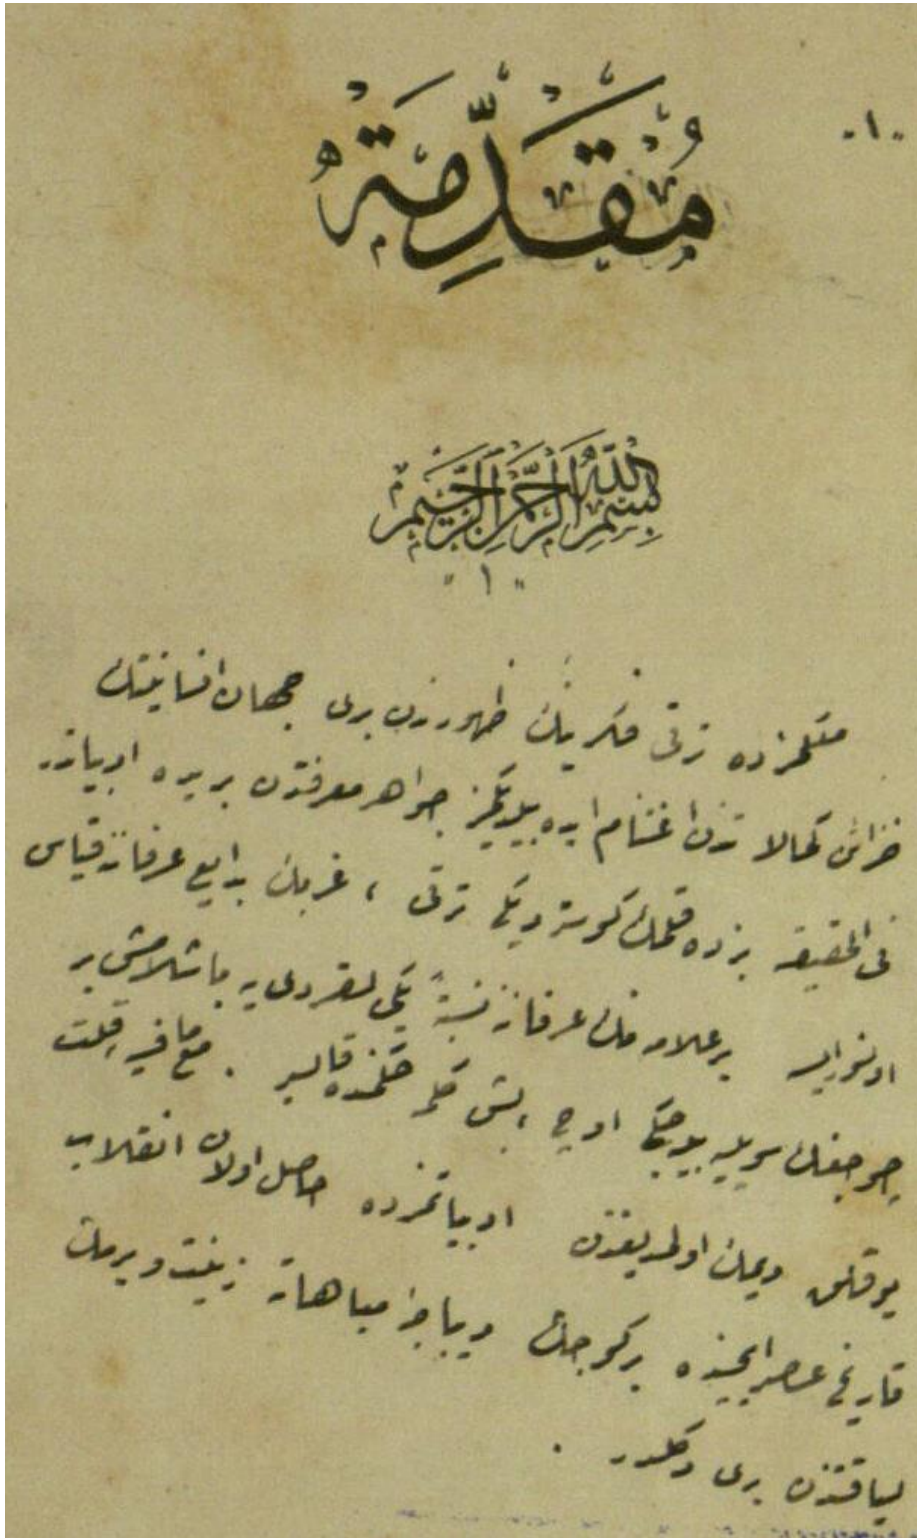 -١-
مُقَدِّمَةٌ
بِسْمِ اللّٰهِ الرَّحْمٰنِ الرَّحِيمِ
"١"
ملكمزده ترقئ فكرينك ظهورندن برى جهان انسانيتك
خزائن كمالاتندن اغتنام ايده بيلديكمز جواهر معرفتدن بريده ادبياتدر
فى الحقيقه بزده قلمك كوستردیكى ترقى ، غربك بدايع عرفاننه قياس
اولنورايسه بر علامه نك عرفاننه نسبةً يكى لقردى يه باشلامش بر
چوجغك سويليه بيله جكى اوچ ، بش كلمه حكمنده قالير . مع مافيه قلت
يوقلق ديمك اولمديغندن ادبياتمزده حاصل اولان انقلاب
تاريخ عصر ايچنده بر كوچك ديباجۀ مباهاته زينت ويرمك
لياقتندن برى دكلدر .